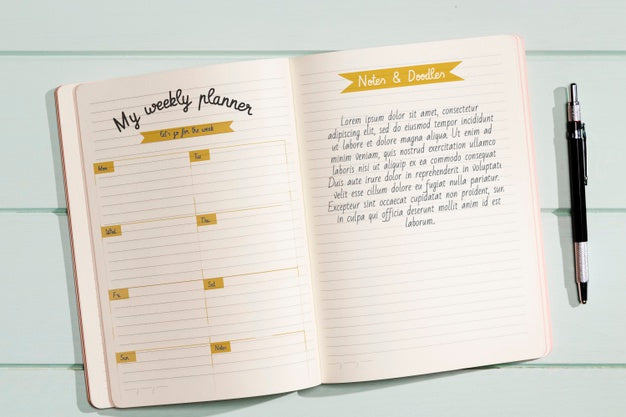 My weekly planner
let's go for the week
Mon
Tue
Wed
Thu
Fri
Sat
Sun
Notes
Notes & Doodles
Lorem ipsum dolor sit amet, consectetur
adipiscing elit, sed do eiusmod tempor incididunt
ut labore et dolore magna aliqua. Ut enim ad
minim veniam, quis nostrud exercitation ullamco
laboris nisi ut aliquip ex ea commodo consequat
Duis aute irure dolor in reprehenderit in voluptate
velit esse cillum dolore eu fugiat nulla pariatur.
Excepteur sint occaecat cupidatat non proident, sunt
in culpa qui officia deserunt mollit anim id est
laborum.